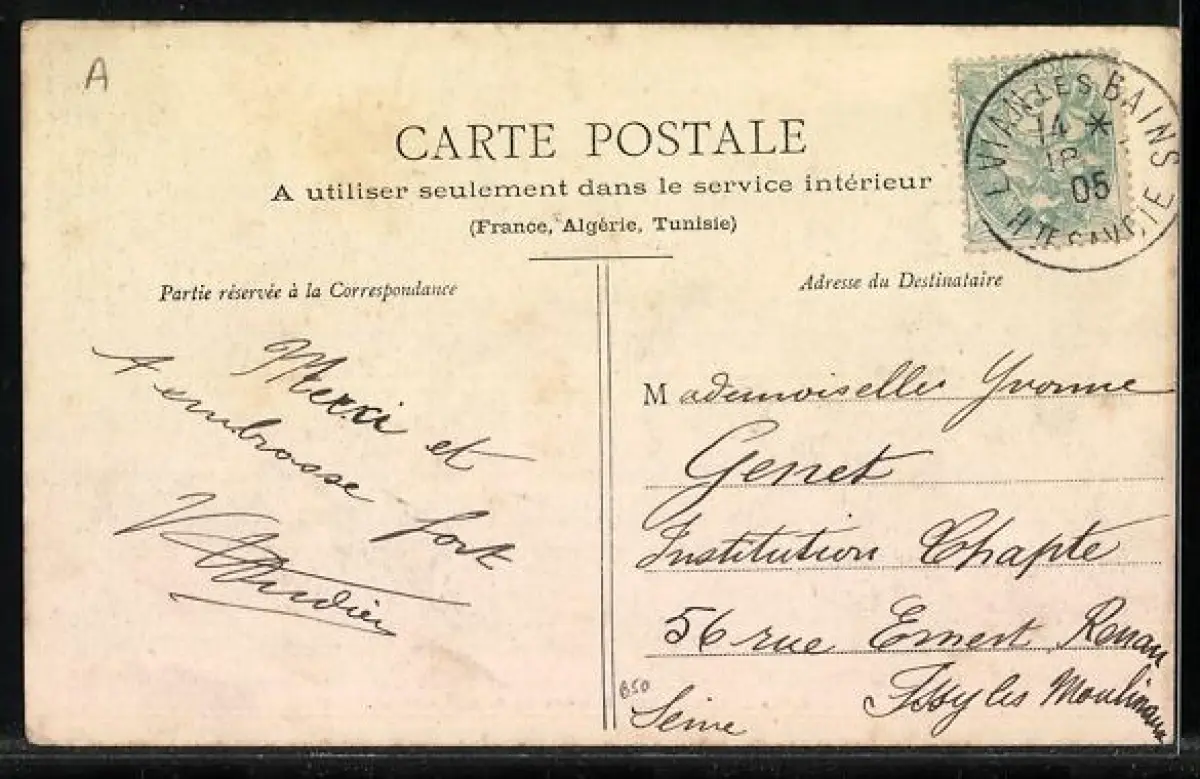 A
CARTE POSTALE
A utiliser seulement dans le service intérieur
(France, Algérie, Tunisie)
EVIAN LES BAINS
14 *
05
HTE SAVOIE
Partie réservée à la Correspondance
Merci et
embrasse fort
Adresse du Destinataire
Mademoiselle Yvonne
Genet
Institution Chapte
56 rue Ernest Renan
Issy les Moulineaux
Seine